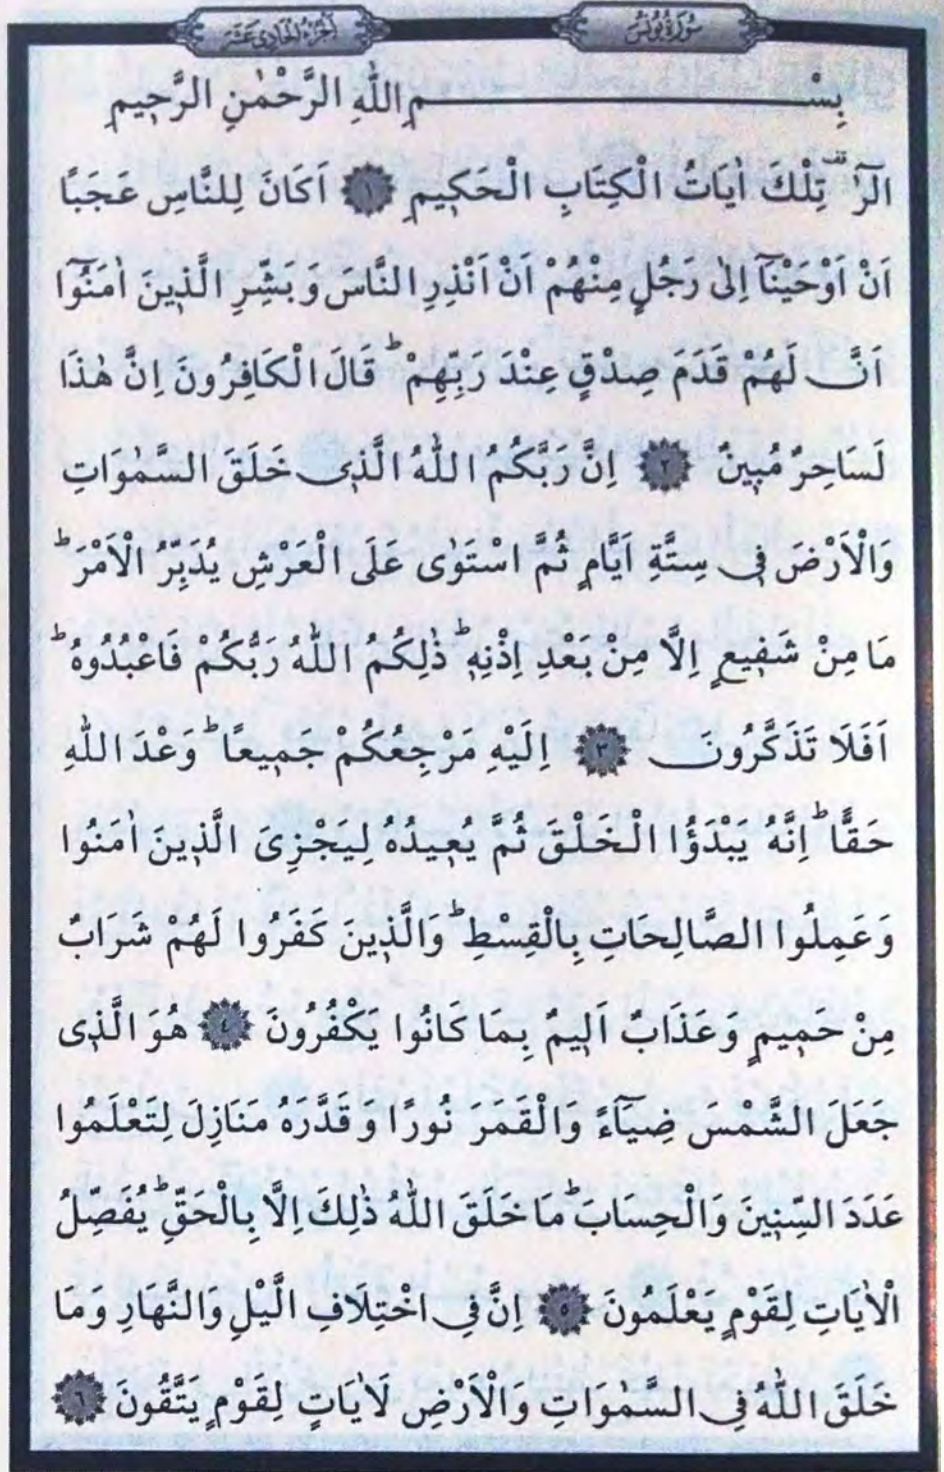 سُورَةُ يُونُسَ
اَلْجُزْءُ الْحَادِيَ عَشَرَ
بِسْمِ اللّٰهِ الرَّحْمٰنِ الرَّحٖيمِ
الٓرٰ ۠ تِلْكَ اٰيَاتُ الْكِتَابِ الْحَكٖيمِ ﴿١﴾ اَكَانَ لِلنَّاسِ عَجَبًا
اَنْ اَوْحَيْنَٓا اِلٰى رَجُلٍ مِنْهُمْ اَنْ اَنْذِرِ النَّاسَ وَبَشِّرِ الَّذٖينَ اٰمَنُٓوا
اَنَّ لَهُمْ قَدَمَ صِدْقٍ عِنْدَ رَبِّهِمْؕ قَالَ الْكَافِرُونَ اِنَّ هٰذَا
لَسَاحِرٌ مُبٖينٌ ﴿٢﴾ اِنَّ رَبَّكُمُ اللّٰهُ الَّذٖى خَلَقَ السَّمٰوَاتِ
وَالْاَرْضَ فٖى سِتَّةِ اَيَّامٍ ثُمَّ اسْتَوٰى عَلَى الْعَرْشِ يُدَبِّرُ الْاَمْرَؕ
مَا مِنْ شَفٖيعٍ اِلَّا مِنْ بَعْدِ اِذْنِهٖؕ ذٰلِكُمُ اللّٰهُ رَبُّكُمْ فَاعْبُدُوهُؕ
اَفَلَا تَذَكَّرُونَ ﴿٣﴾ اِلَيْهِ مَرْجِعُكُمْ جَمٖيعًاؕ وَعْدَ اللّٰهِ
حَقًّاؕ اِنَّهُ يَبْدَؤُا الْخَلْقَ ثُمَّ يُعٖيدُهُ لِيَجْزِىَ الَّذٖينَ اٰمَنُوا
وَعَمِلُوا الصَّالِحَاتِ بِالْقِسْطِؕ وَالَّذٖينَ كَفَرُوا لَهُمْ شَرَابٌ
مِنْ حَمٖيمٍ وَعَذَابٌ اَلٖيمٌ بِمَا كَانُوا يَكْفُرُونَ ﴿٤﴾ هُوَ الَّذٖى
جَعَلَ الشَّمْسَ ضِيَٓاءً وَالْقَمَرَ نُورًا وَقَدَّرَهُ مَنَازِلَ لِتَعْلَمُوا
عَدَدَ السِّنٖينَ وَالْحِسَابَؕ مَا خَلَقَ اللّٰهُ ذٰلِكَ اِلَّا بِالْحَقِّۚ يُفَصِّلُ
الْاٰيَاتِ لِقَوْمٍ يَعْلَمُونَ ﴿٥﴾ اِنَّ فِى اخْتِلَافِ الَّيْلِ وَالنَّهَارِ وَمَا
خَلَقَ اللّٰهُ فِى السَّمٰوَاتِ وَالْاَرْضِ لَاٰيَاتٍ لِقَوْمٍ يَتَّقُونَ ﴿٦﴾